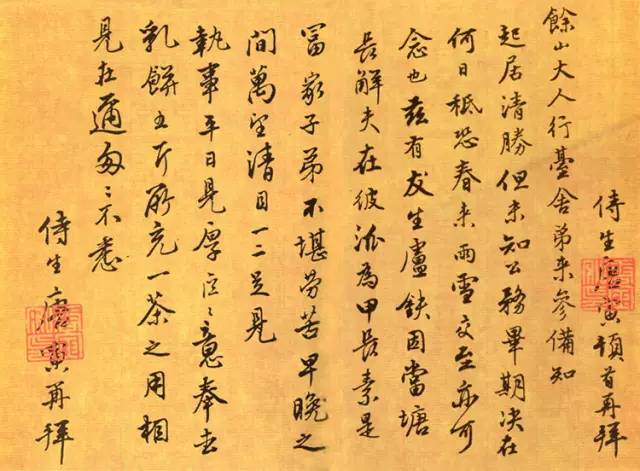 侍生唐寅頓首再拜
餘山大人行臺舍弟来參備知
起居清勝但未知公務畢期决在
何日秪恐春来雨雪交至亦可
念也茲有友生盧鈇因當塘
長解夫在彼派為甲長素是
富家子弟不堪勞苦早晚之
間萬望清目一二足見
執事平日見厚區〻意奉去
乳餅五斤所充一茶之用相
見在邇匆〻不悉
侍生唐寅再拜